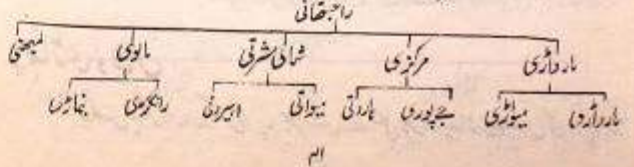 راجستھانی
مارواڑی مرکزی شمالی مشرقی مالوی لمبھنی
مارواڑی میواڑی جے پوری ہاروتی میواتی اہیرواٹی رانگڑی نماڑی
۱۳۱